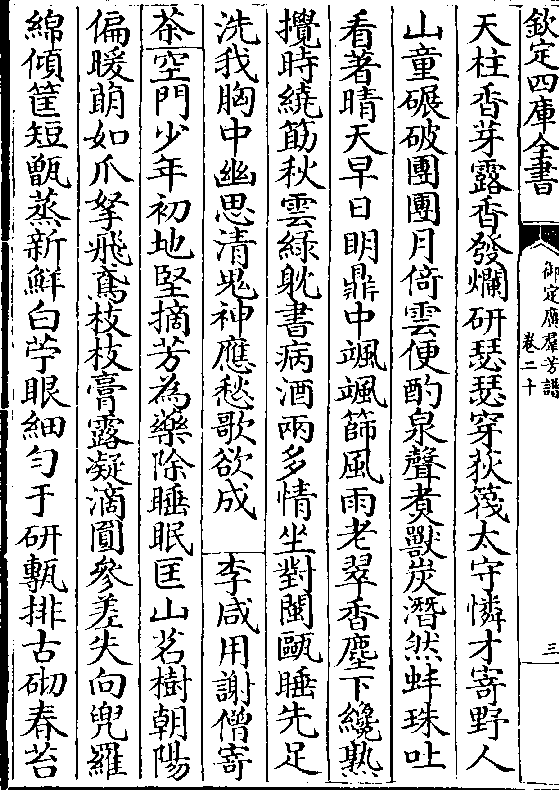 欽定四庫全書
御定廣羣芳譜
卷二十
三
天柱香芽露香發爛研瑟瑟穿荻篾太守憐才寄野人
山童碾破團團月倚雲便酌泉聲煑獸炭潛然蚌珠吐
看著晴天早日明鼎中颯颯篩風雨老翠香塵下纔熟
攪時繞筯秋雲綠躭書病酒兩多情坐對閩甌睡先足
洗我胸中幽思清鬼神應愁歌欲成　李咸用謝僧寄
茶空門少年初地堅摘芳為藥除睡眠匡山茗樹朝陽
偏暖萌如爪拏飛鳶枝枝膏露凝滴圓參差失向兜羅
綿傾筐短甑蒸新鮮白苧眼細勻于研甎排古砌春苔